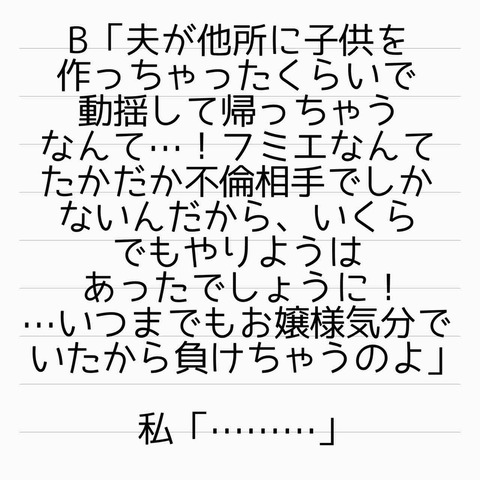 B「夫が他所に子供を
作っちゃったくらいで
動揺して帰っちゃう
なんて…！フミエなんて
たかだか不倫相手でしか
ないんだから、いくら
でもやりようは
あったでしょうに！
…いつまでもお嬢様気分で
いたから負けちゃうのよ」
私「………」